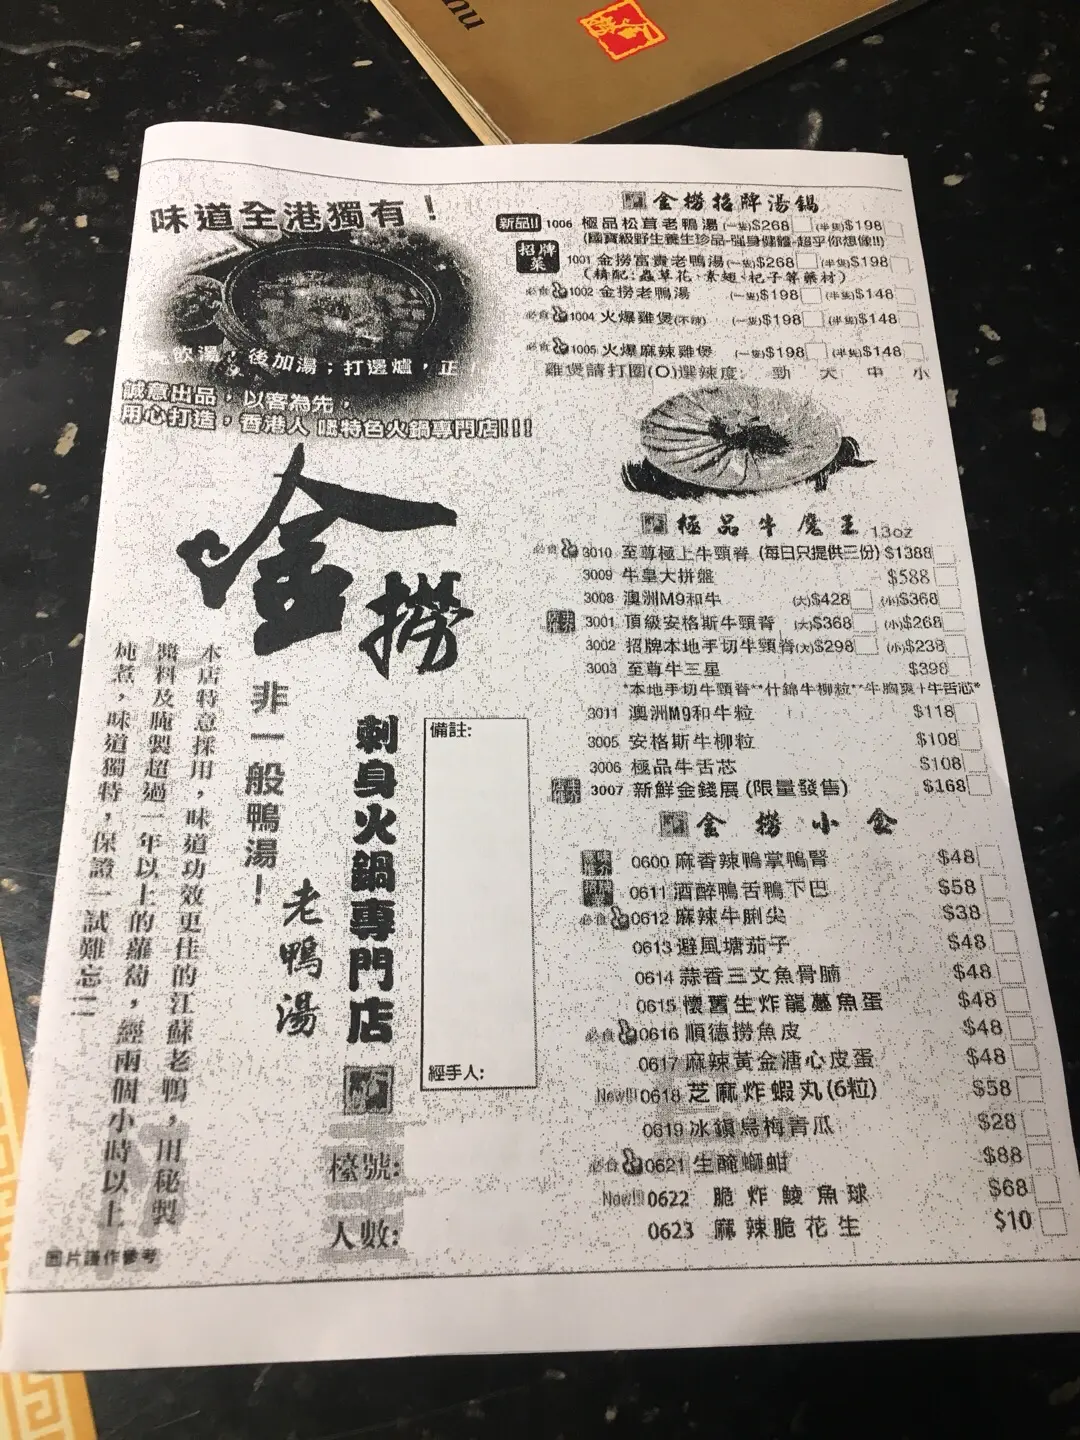 nu
味道全港獨有！
飲湯，後加湯；打邊爐，正
誠意出品，以客為先，
用心打造，香港人 嘅特色火鍋專門店!!!!
金撈
刺身火鍋專門店
非一般鴨湯！
老鴨湯
本店特意採用，味道功效更佳的江蘇老鴨，用秘製
醬料及醃製超過一年以上的蘿蔔，經兩個小時以上
炖煮，味道獨特，保證一試難忘!!!
備註:
經手人:
檯號:
人數:
圖片謹作參考
金撈招牌湯鍋
新品!! 1006 極品松茸老鴨湯(一隻)$268 (半隻)$198
(國寶級野生養生珍品-強身健體-超乎你想像!!)
招牌菜 1001 金撈富貴老鴨湯(一隻)$268 (半隻)$198
(精配:蟲草花、素翅、杞子等藥材)
必食 1002 金撈老鴨湯 (一隻)$198 (半隻)$148
必食 1004 火爆雞煲(不辣) (一隻)$198 (半隻)$148
必食 1005 火爆麻辣雞煲 (一隻)$198 (半隻)$148
雞煲請打圈(O)選辣度: 勁 大 中 小
極品牛魔王 13oz
必食 3010 至尊極上牛頸脊 (每日只提供三份) $1388
3009 牛皇大拼盤 $588
3008 澳洲M9和牛 (大)$428 (小)$368
3001 頂級安格斯牛頸脊 (大)$368 (小)$268
3002 招牌本地手切牛頸脊(大)$298 (小)$238
3003 至尊牛三星 $398
*本地手切牛頸脊**什錦牛柳粒**牛胸爽+牛舌芯*
3011 澳洲M9和牛粒 $118
3005 安格斯牛柳粒 $108
3006 極品牛舌芯 $108
3007 新鮮金錢展 (限量發售) $168
金撈小食
0600 麻香辣鴨掌鴨腎 $48
0611 酒醉鴨舌鴨下巴 $58
必食 0612 麻辣牛𦟌尖 $38
0613 避風塘茄子 $48
0614 蒜香三文魚骨腩 $48
0615 懷舊生炸龍躉魚蛋 $48
必食 0616 順德撈魚皮 $48
0617 麻辣黃金溏心皮蛋 $48
New!!! 0618 芝麻炸蝦丸(6粒) $58
0619 冰鎮烏梅青瓜 $28
必食 0621 生醃螄蚶 $88
New!!! 0622 脆炸鯪魚球 $68
0623 麻辣脆花生 $10